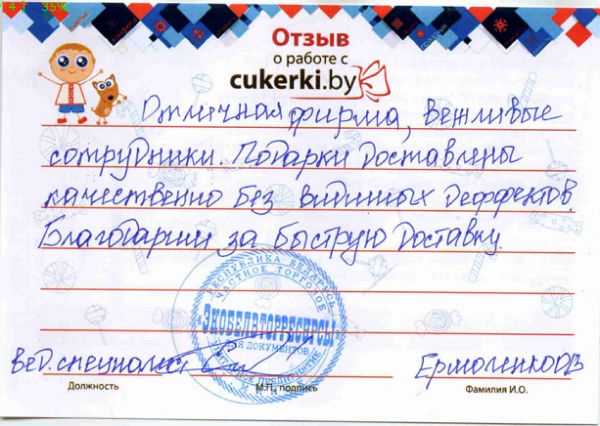 Отзыв
о работе с
cukerki.by
Отличная фирма, вежливые
сотрудники. Подарки доставлены
качественно без видимых деффектов.
Благодарим за быструю доставку.
РЕСПУБЛИКА БЕЛАРУСЬ
ЧАСТНОЕ ТОРГОВОЕ
«ЭКОБЕЛВТОРРЕСУРСЫ»
ДЛЯ ДОКУМЕНТОВ
Вед. специалист
Ермоленко ОВ
Должность М.П., подпись Фамилия И.О.